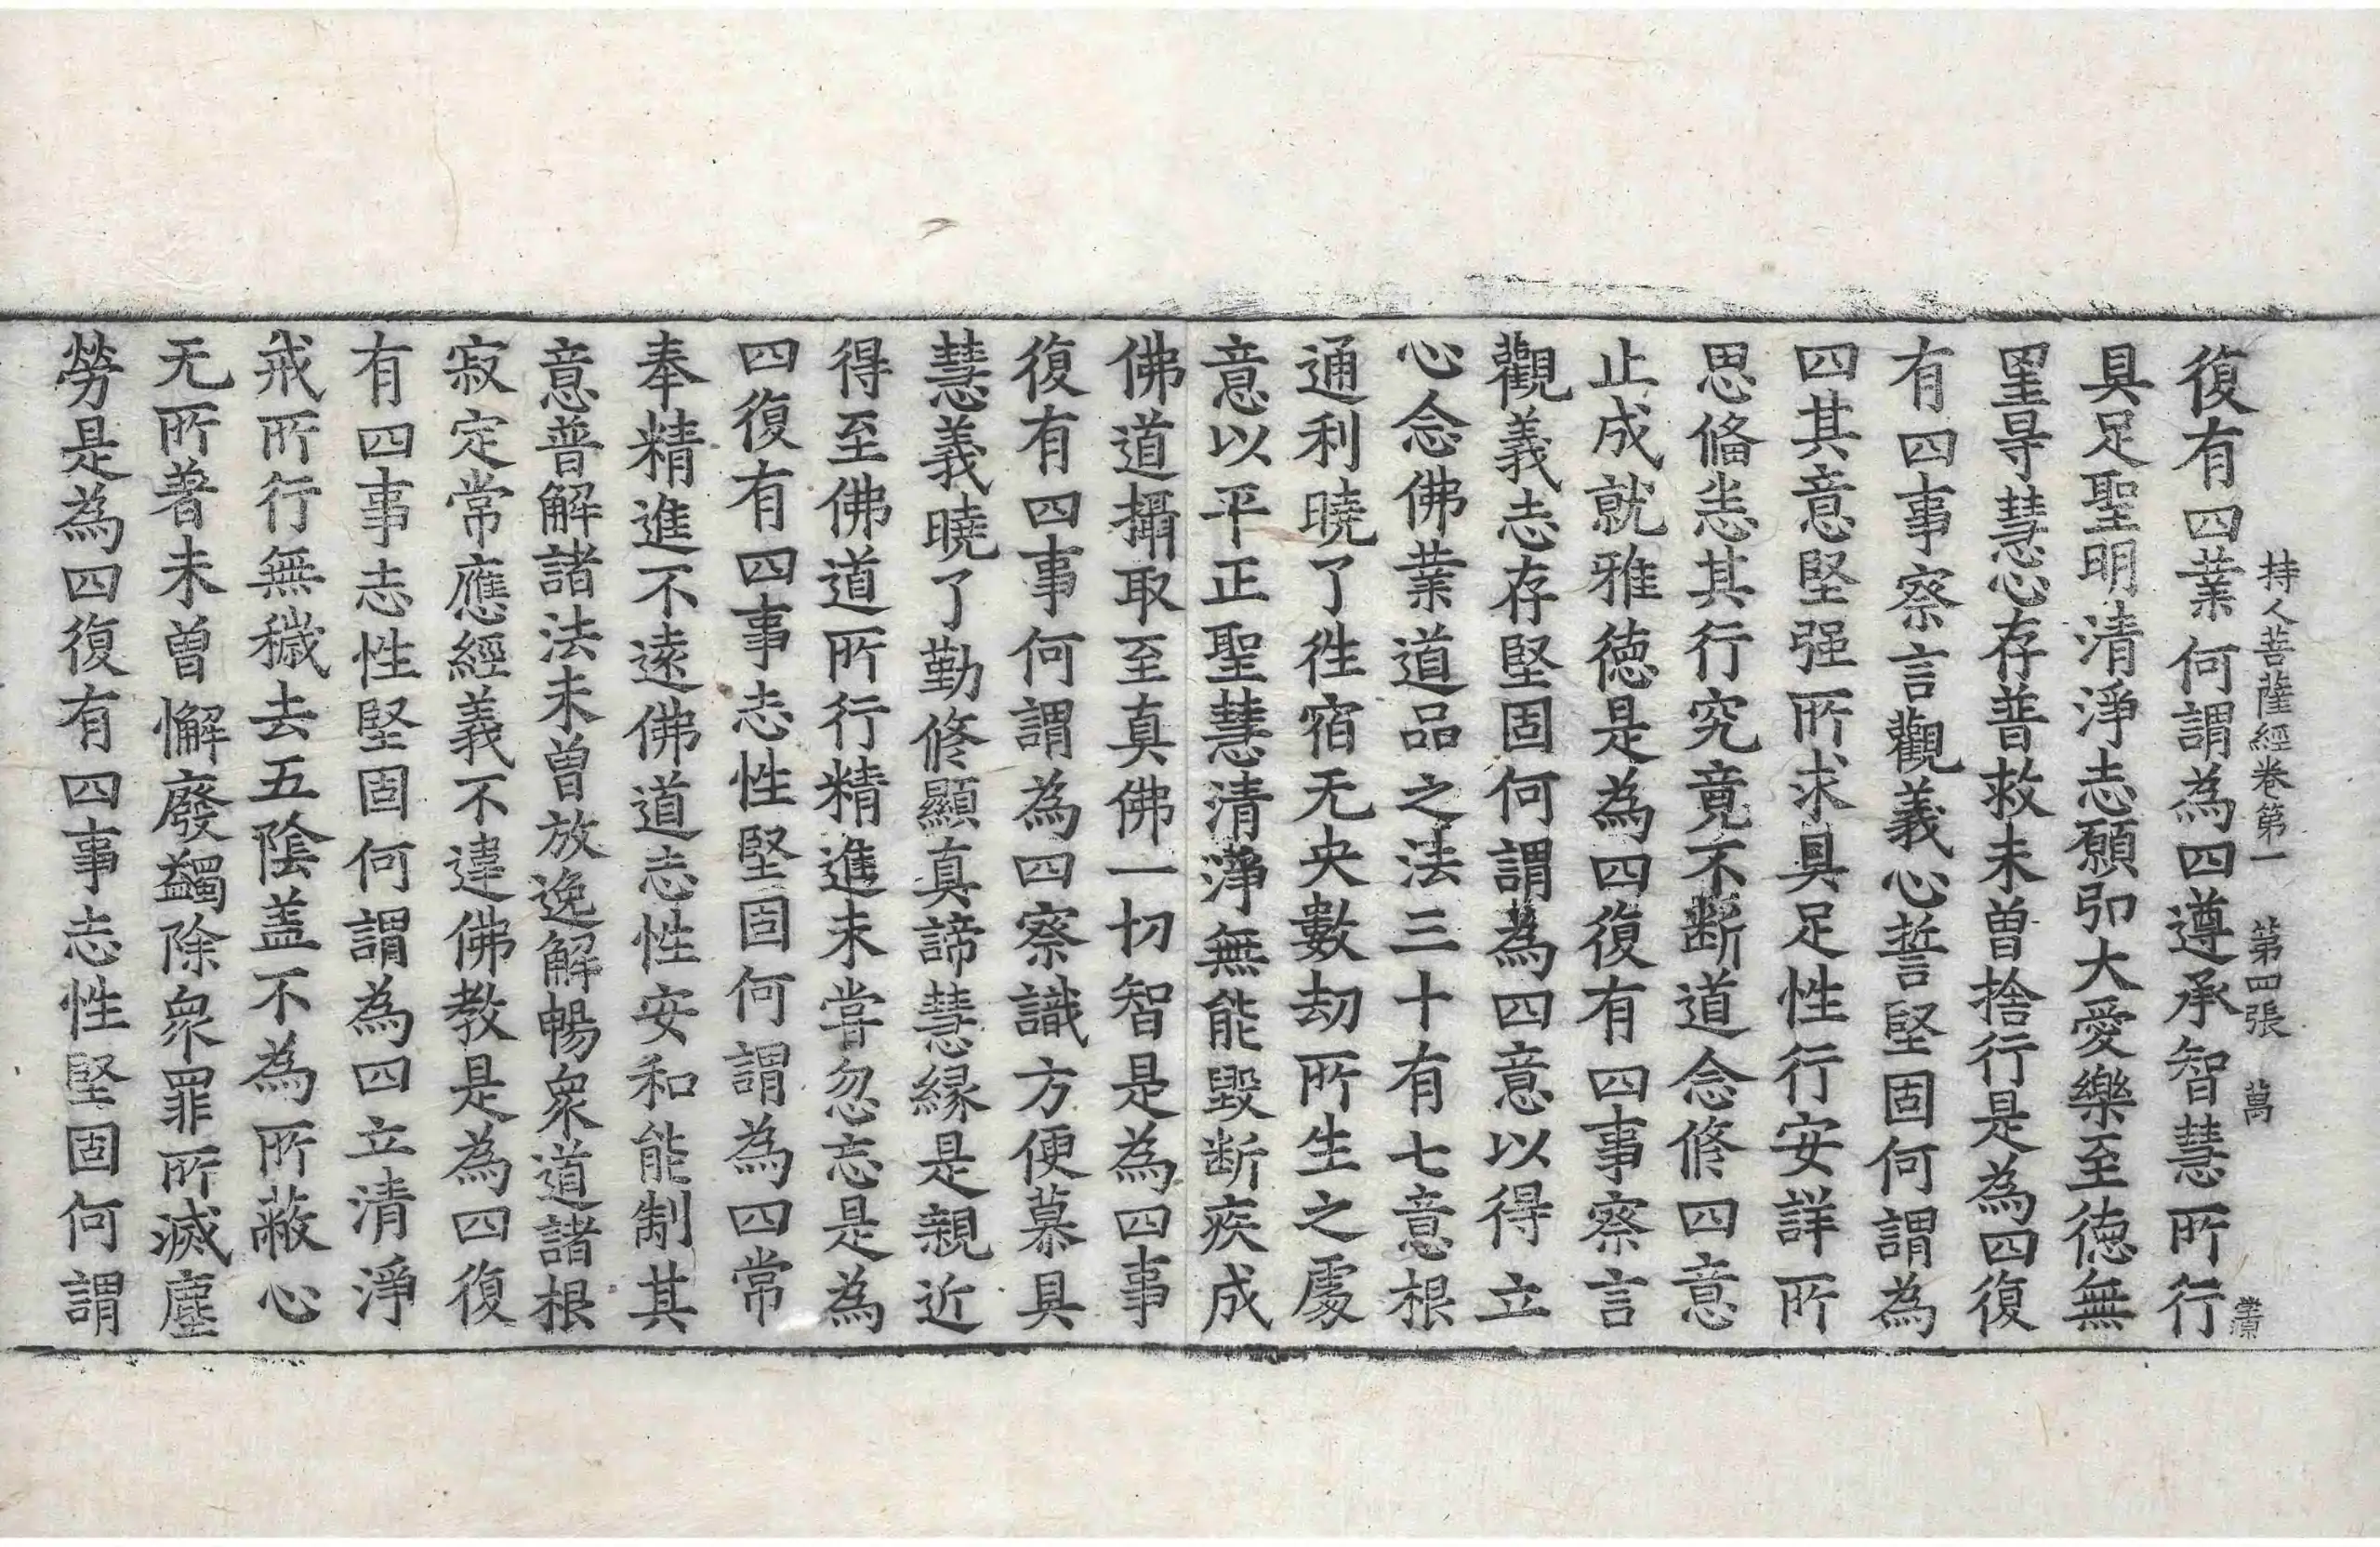 持人菩薩經卷第一 第四張 萬
復有四業何謂為四遵承智慧所行
具足聖明清淨志願弘大愛樂至德無
罣㝵慧心存普救未曾捨行是為四復
有四事察言觀義心誓堅固何謂為
四其意堅强所求具足性行安詳所
思俻恙其行究竟不断道念修四意
止成就雅德是為四復有四事察言
觀義志存堅固何謂為四意以得立
心念佛業道品之法三十有七意根
通利曉了徃宿无央數劫所生之處
意以平正聖慧清淨無能毀断疾成
佛道攝取至真佛一切智是為四事
復有四事何謂為四察識方便慕具
慧義曉了勤修顯真諦慧縁是親近
得至佛道所行精進未嘗忽忘是為
四復有四事志性堅固何謂為四常
奉精進不遠佛道志性安和能制其
意普解諸法未曽放逸解暢衆道諸根
寂定常應經義不違佛教是為四復
有四事志性堅固何謂為四立清淨
戒所行無穢去五陰盖不為所蔽心
无所著未曽懈廢蠲除衆罪所滅塵
勞是為四復有四事志性堅固何謂